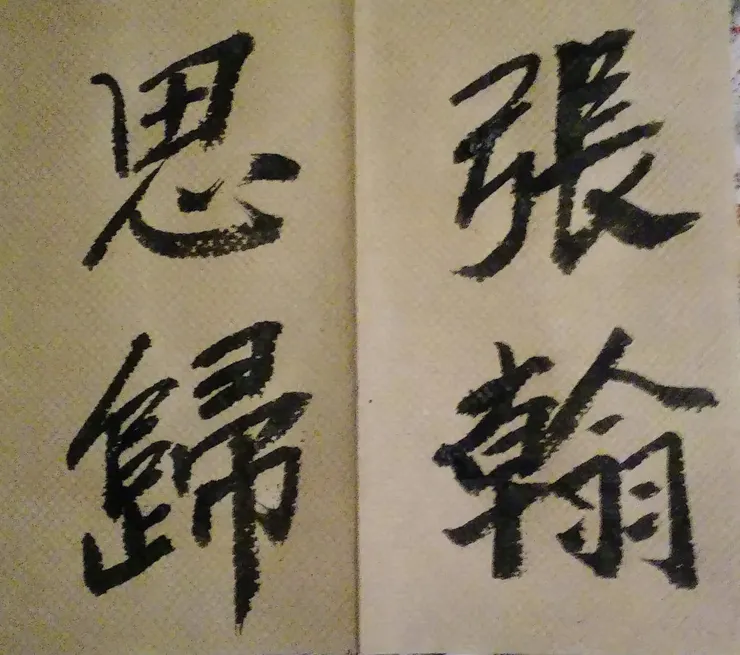 張翰
思歸